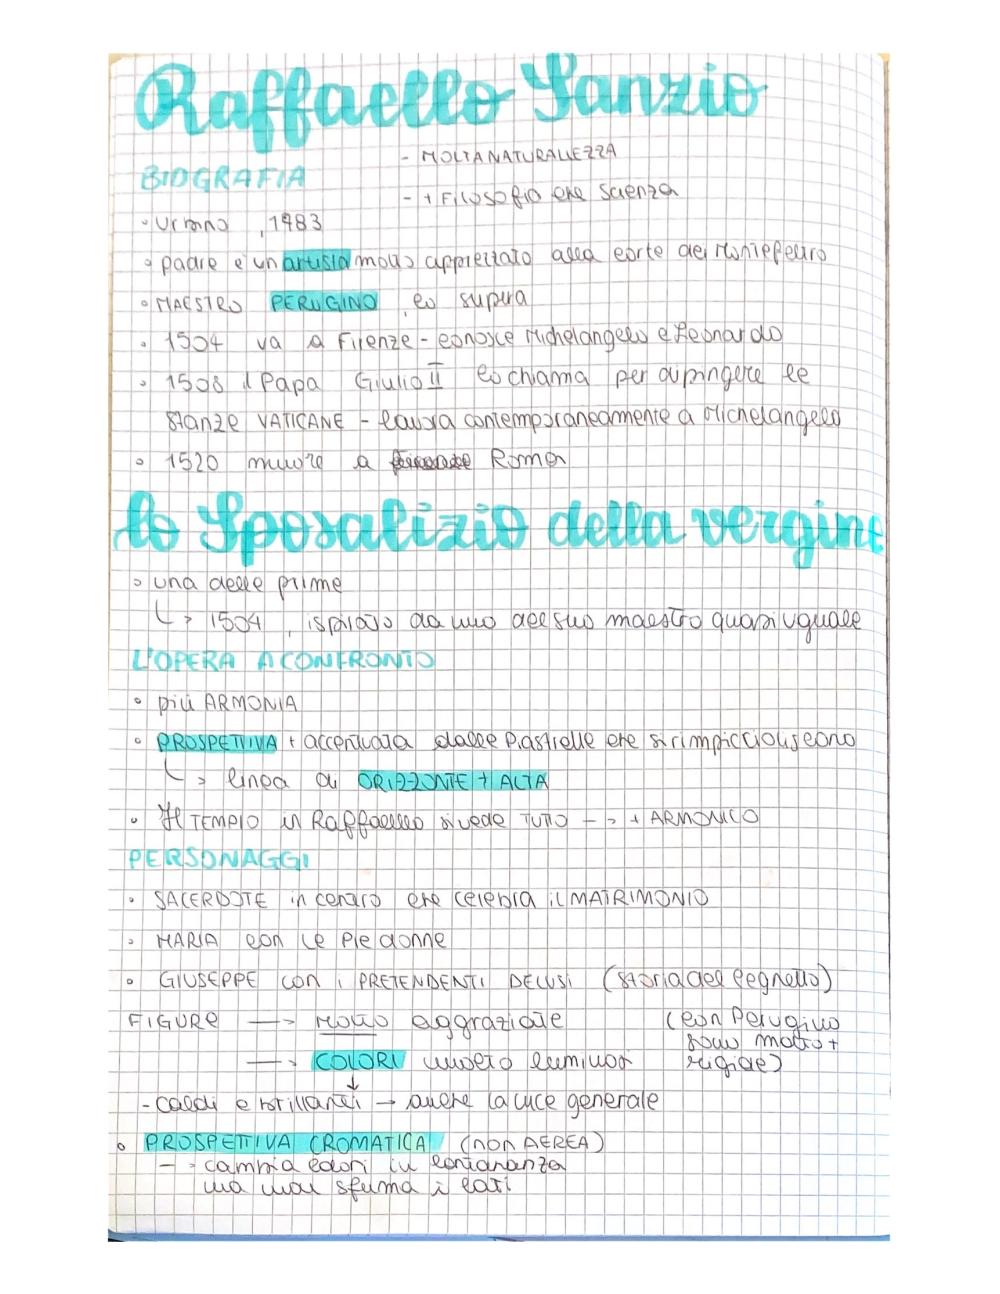 Raffaello Sanzio
- MOLTA NATURALEZZA
BIOGRAFIA
- + FILOSOFIA che scienza
• Urbino, 1483
• padre è un artista molto apprezzato alla corte dei Montefeltro
• MAESTRO PERUGINO, lo supera
• 1504 va a Firenze - conosce Michelangelo e Leonardo
• 1508 il Papa Giulio II lo chiama per dipingere le
stanze VATICANE - lavora contemporaneamente a Michelangelo
• 1520 muore a Roma
lo Sposalizio della vergine
• una delle prime
↳ 1504, ispirato da uno del suo maestro quasi uguale
L'OPERA A CONFRONTO
• più ARMONIA
• PROSPETTIVA + accentuata dalle piastrelle che si rimpiccioliscono
↳ linea di ORIZZONTE + ALTA
• Il TEMPIO in Raffaello si vede TUTTO --> + ARMONICO
PERSONAGGI
• SACERDOTE in centro che celebra il MATRIMONIO
• MARIA con le Pie donne
• GIUSEPPE con i PRETENDENTI DELUSI (storia del legnetto)
FIGURE —> molto aggraziate (con Perugino
sono molto +
—> COLORI molto luminosi rigide)
↓
- caldi e brillanti → anche la luce generale
• PROSPETTIVA CROMATICA (non AEREA)
—> cambia colori in lontananza
ma non sfuma i lati